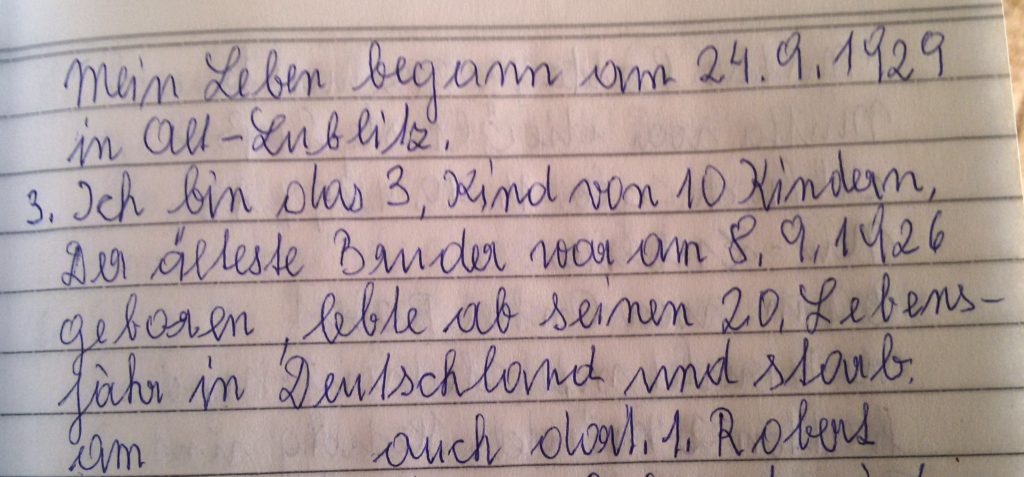 Mein Leben begann am 24.9.1929
in Alt-Lublitz.
3. Ich bin das 3, Kind von 10 Kindern,
Der älteste Bruder war am 8,9,1926
geboren, lebte ab seinen 20, Lebens-
jahr in Deutschland und starb.
am auch dort. 1. Robert